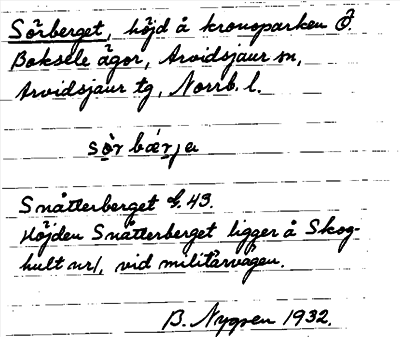 Sörberget, höjd å kronoparken Ö.
Boksele ägor, Arvidsjaur sn,
Arvidsjaur tg, Norrb. l.
sòr bǽrja
Snåtterberget G. 43.
Höjden Snåtterberget ligger å Skog-
hult nr1, vid militärvägen.
B. Nygren 1932.